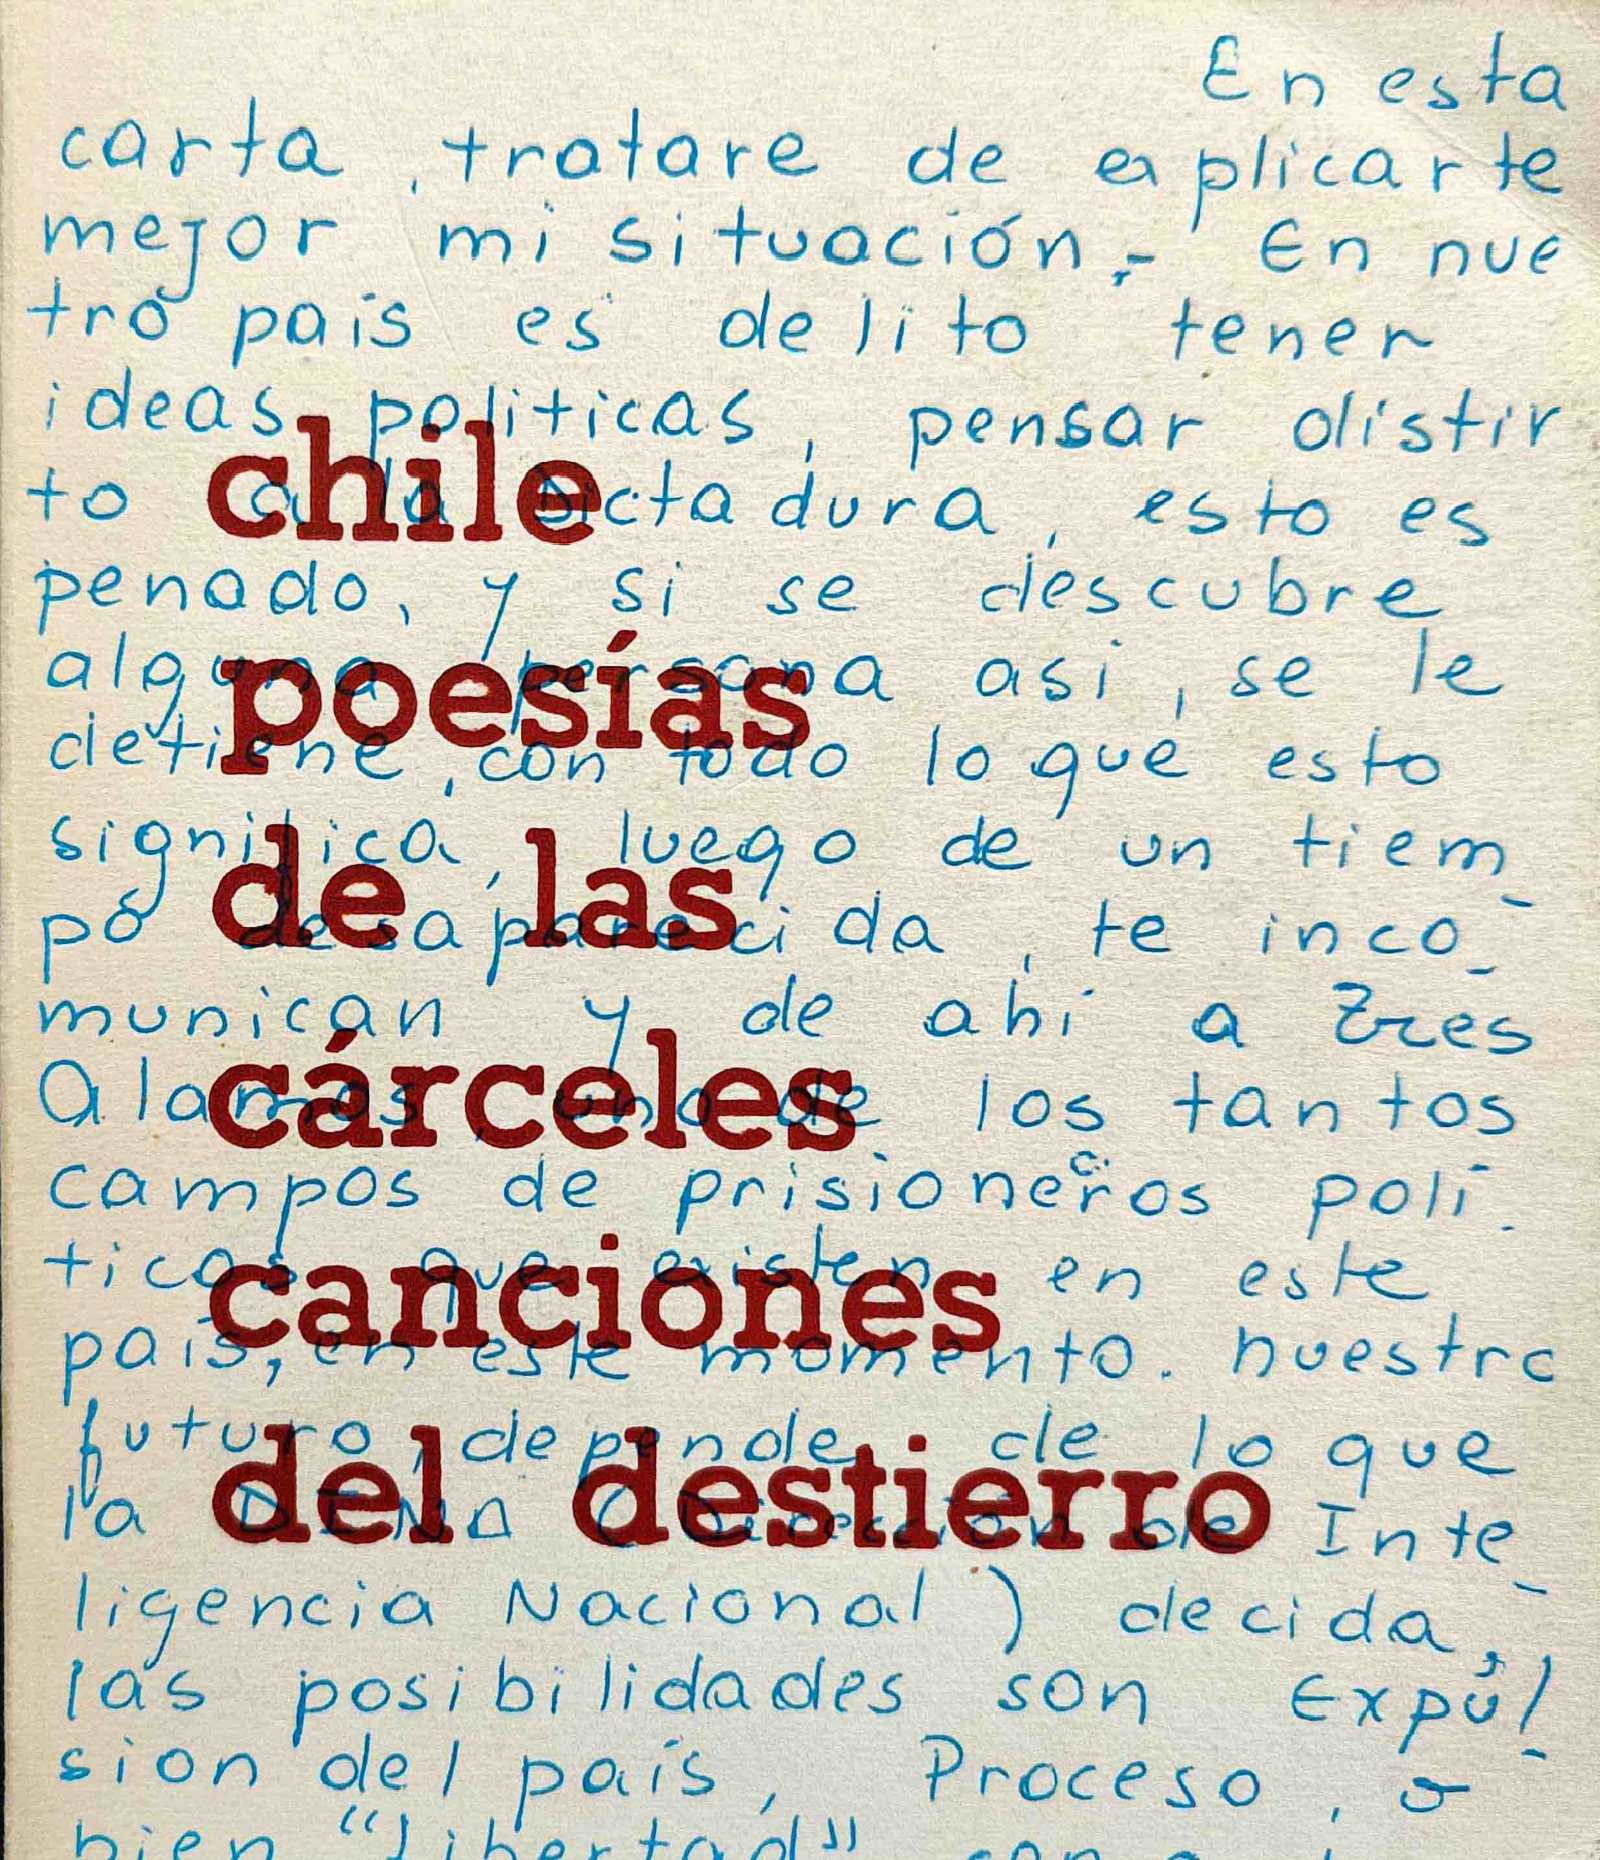 En esta
carta, tratare de explicarte
mejor mi situación,- En nue
tro pais es delito tener
ideas politicas, pensar distin
to a la Dictadura, esto es
penado, y si se descubre
alguna persona asi, se le
detiene, con todo lo que esto
significa, luego de un tiem_
po desaparecida, te inco_
munican y de ahi a Tres
Alamos, uno de los tantos
campos de prisioneros poli_
ticos que existen en este
pais, en este momento. nuestro
futuro, depende de lo que
la DINA (Dirección de Inte_
ligencia Nacional) decida,
las posibilidades son Expul_
sion del país, Proceso, o
bien "libertad"
chile
poesías
de las
cárceles
canciones
del destierro